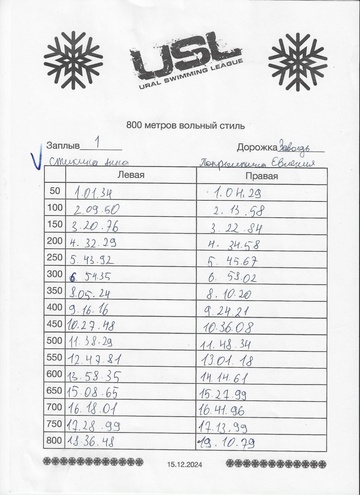 USL
URAL SWIMMING LEAGUE
800 метров вольный стиль
Заплыв 1 Дорожка
Анна Евгения
Левая Правая
50 1.01.34 1.04.29
100 2.09.60 2.13.58
150 3.20.76 3.22.84
200 4.32.29 4.34.58
250 5.43.92 5.45.67
300 6.54.35 6.58.02
350 8.05.24 8.10.20
400 9.16.16 9.24.21
450 10.27.48 10.36.08
500 11.38.29 11.48.34
550 12.47.81 13.01.18
600 13.58.35 14.14.61
650 15.08.65 15.27.99
700 16.18.01 16.41.96
750 17.28.99 17.13.99
800 18.36.48 19.10.79
15.12.2024